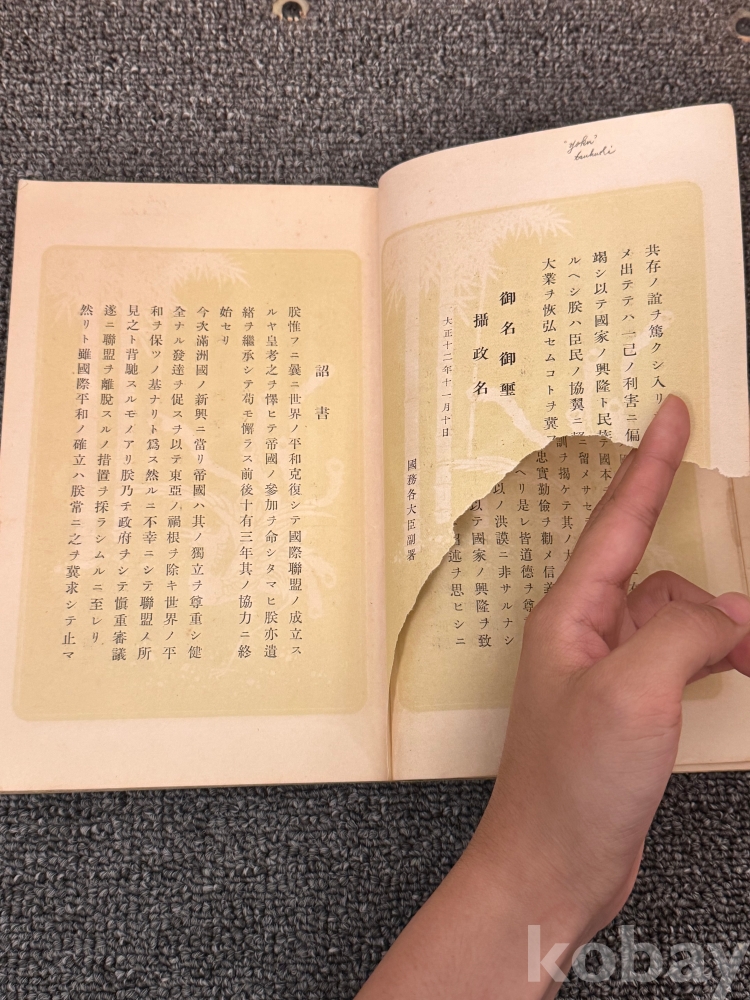 "John"
tsuhuki
共存ノ誼ヲ篤クシ入リ
メ出テテハ一己ノ利害ニ偏
竭シ以テ國家ノ興隆ト民族
ルヘシ朕ハ臣民ノ協翼ニ
大業ヲ恢弘セムコトヲ冀フ
御名御璽
攝政名
大正十二年十一月十日
國務各大臣副署
國本
ニ留メサセ
訓ヲ揭ケテ其ノ大
忠實勤儉ヲ勸メ信義
ヘリ是レ皆道德ヲ尊
以ノ洪謨ニ非サルナシ
以テ國家ノ興隆ヲ致
述ヲ思ヒシニ
詔書
朕惟フニ曩ニ世界ノ平和克復シテ國際聯盟ノ成立ス
ルヤ皇考之ヲ懌ヒテ帝國ノ參加ヲ命シタマヒ朕亦遺
緖ヲ繼承シテ苟モ懈ラス前後十有三年其ノ協力ニ終
始セリ
今次滿洲國ノ新興ニ當リ帝國ハ其ノ獨立ヲ尊重シ健
全ナル發達ヲ促スヲ以テ東亞ノ禍根ヲ除キ世界ノ平
和ヲ保ツノ基ナリト爲ス然ルニ不幸ニシテ聯盟ノ所
見之ト背馳スルモノアリ朕乃チ政府ヲシテ愼重審議
遂ニ聯盟ヲ離脫スルノ措置ヲ採ラシムルニ至レリ
然リト雖國際平和ノ確立ハ朕常ニ之ヲ冀求シテ止マ
kobay